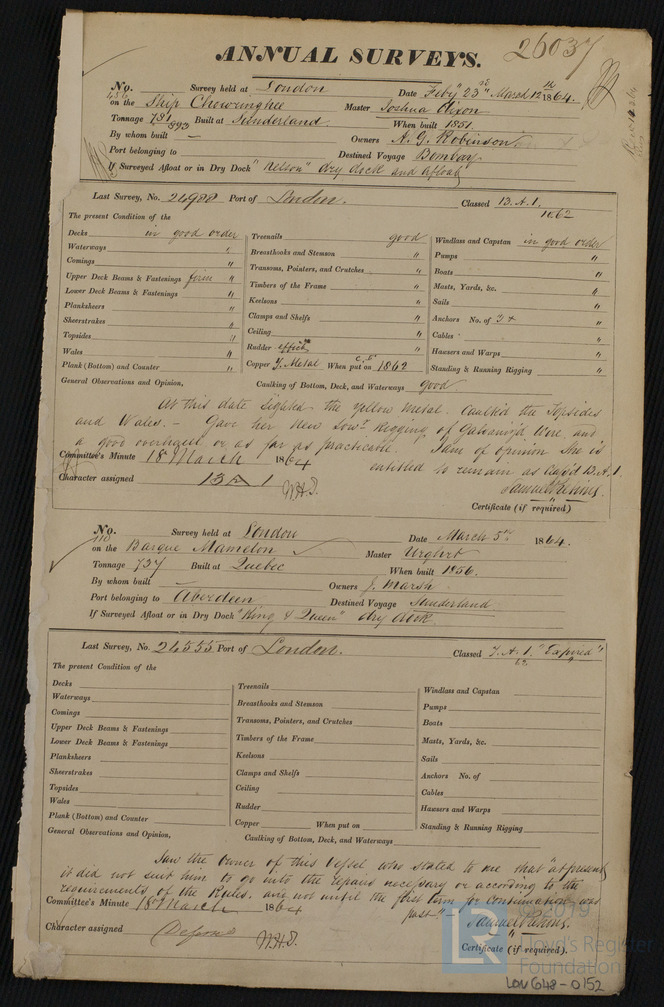 26037
ANNUAL SURVEYS.
No. 486 Survey held at London Date Feby 23rd March 12th 1864.
on the Ship Chowringhee Master Joshua Dixon
Tonnage 781 893 Built at Sunderland When built 1851.
By whom built — Owners A. G. Robinson
Port belonging to Destined Voyage Bombay
If Surveyed Afloat or in Dry Dock "Nelson" dry dock and afloat
Last Survey, No. 24988 Port of London. Classed 13. A. 1. 1862
The present Condition of the
Decks in good order Treenails good Windlass and Capstan in good order
Waterways " Breasthooks and Stemson " Pumps "
Comings " Transoms, Pointers, and Crutches " Boats "
Upper Deck Beams & Fastenings firm " Timbers of the Frame " Masts, Yards, &c. "
Lower Deck Beams & Fastenings " Keelsons " Sails "
Planksheers " Clamps and Shelfs " Anchors No. of "
Sheerstrakes " Ceiling " Cables "
Topsides " Rudder " Hawsers and Warps "
Wales " Copper Y. Metal When put on 1862 Standing & Running Rigging "
Plank (Bottom) and Counter "
General Observations and Opinion, Caulking of Bottom, Deck, and Waterways good
At this date sighted the Yellow Metal. Caulked the Topsides
and Wales. — Gave her New Lowr Rigging of Galvanized Wire and
a good overhaul or as far as practicable. I am of opinion she is
entitled to remain as Class'd 13. A. 1.
Committee's Minute 18 March 1864
Character assigned 13 A 1
Certificate (if required) "
No. 110 Survey held at London Date March 5th 1864.
on the Barque Mamelon Master Urghrt
Tonnage 737 Built at Quebec When built 1856.
By whom built — Owners J. Marsh
Port belonging to Aberdeen Destined Voyage Sunderland
If Surveyed Afloat or in Dry Dock "King & Queen" dry dock.
Last Survey, No. 24555 Port of London. Classed 7. A. 1. "Expired"
The present Condition of the
Decks Treenails Windlass and Capstan
Waterways Breasthooks and Stemson Pumps
Comings Transoms, Pointers, and Crutches Boats
Upper Deck Beams & Fastenings Timbers of the Frame Masts, Yards, &c.
Lower Deck Beams & Fastenings Keelsons Sails
Planksheers Clamps and Shelfs Anchors No. of
Sheerstrakes Ceiling Cables
Topsides Rudder Hawsers and Warps
Wales Copper When put on Standing & Running Rigging
Plank (Bottom) and Counter
General Observations and Opinion, Caulking of Bottom, Deck, and Waterways
Saw the owner of this Vessel who stated to me that "at present
it did not suit him to go into the repairs necessary or according to the
requirements of the Rules, and not until the first term for Continuation was
past"
Committee's Minute 18 March 1864
Character assigned Deferred
Certificate (if required). "
LR
© 2019
Lloyd's Register
Foundation
LON 648-0152